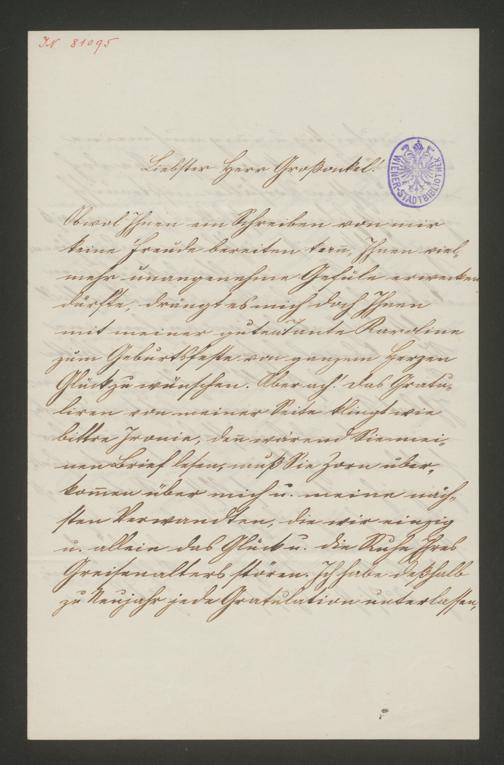 IN 81095
WIENER-STADTBIBLIOTHEK
Liebster Herr Großonkel!
Obwol Ihnen ein Schreiben von mir
keine Freude bereiten kann, Ihnen viel-
mehr unangenehme Gefüle erwecken
dürfte, drängt es mich doch Ihnen
mit meiner guten Tante Karoline
zum Geburtsfeste von ganzem Herzen
Glück zu wünschen. Aber ach! das Gratu-
liren von meiner Seite klingt wie
bittre Ironie, deñ wärend Sie mei-
nen Brief lesen, muß Sie Zorn über-
kom̃en über mich u. meine näch-
sten Verwandten, die wir einzig
u. allein das Glück u. die Ruhe Ihres
Greisenalters stören. Ich habe deßhalb
zu Neujahr jede Gratulation unterlassen,